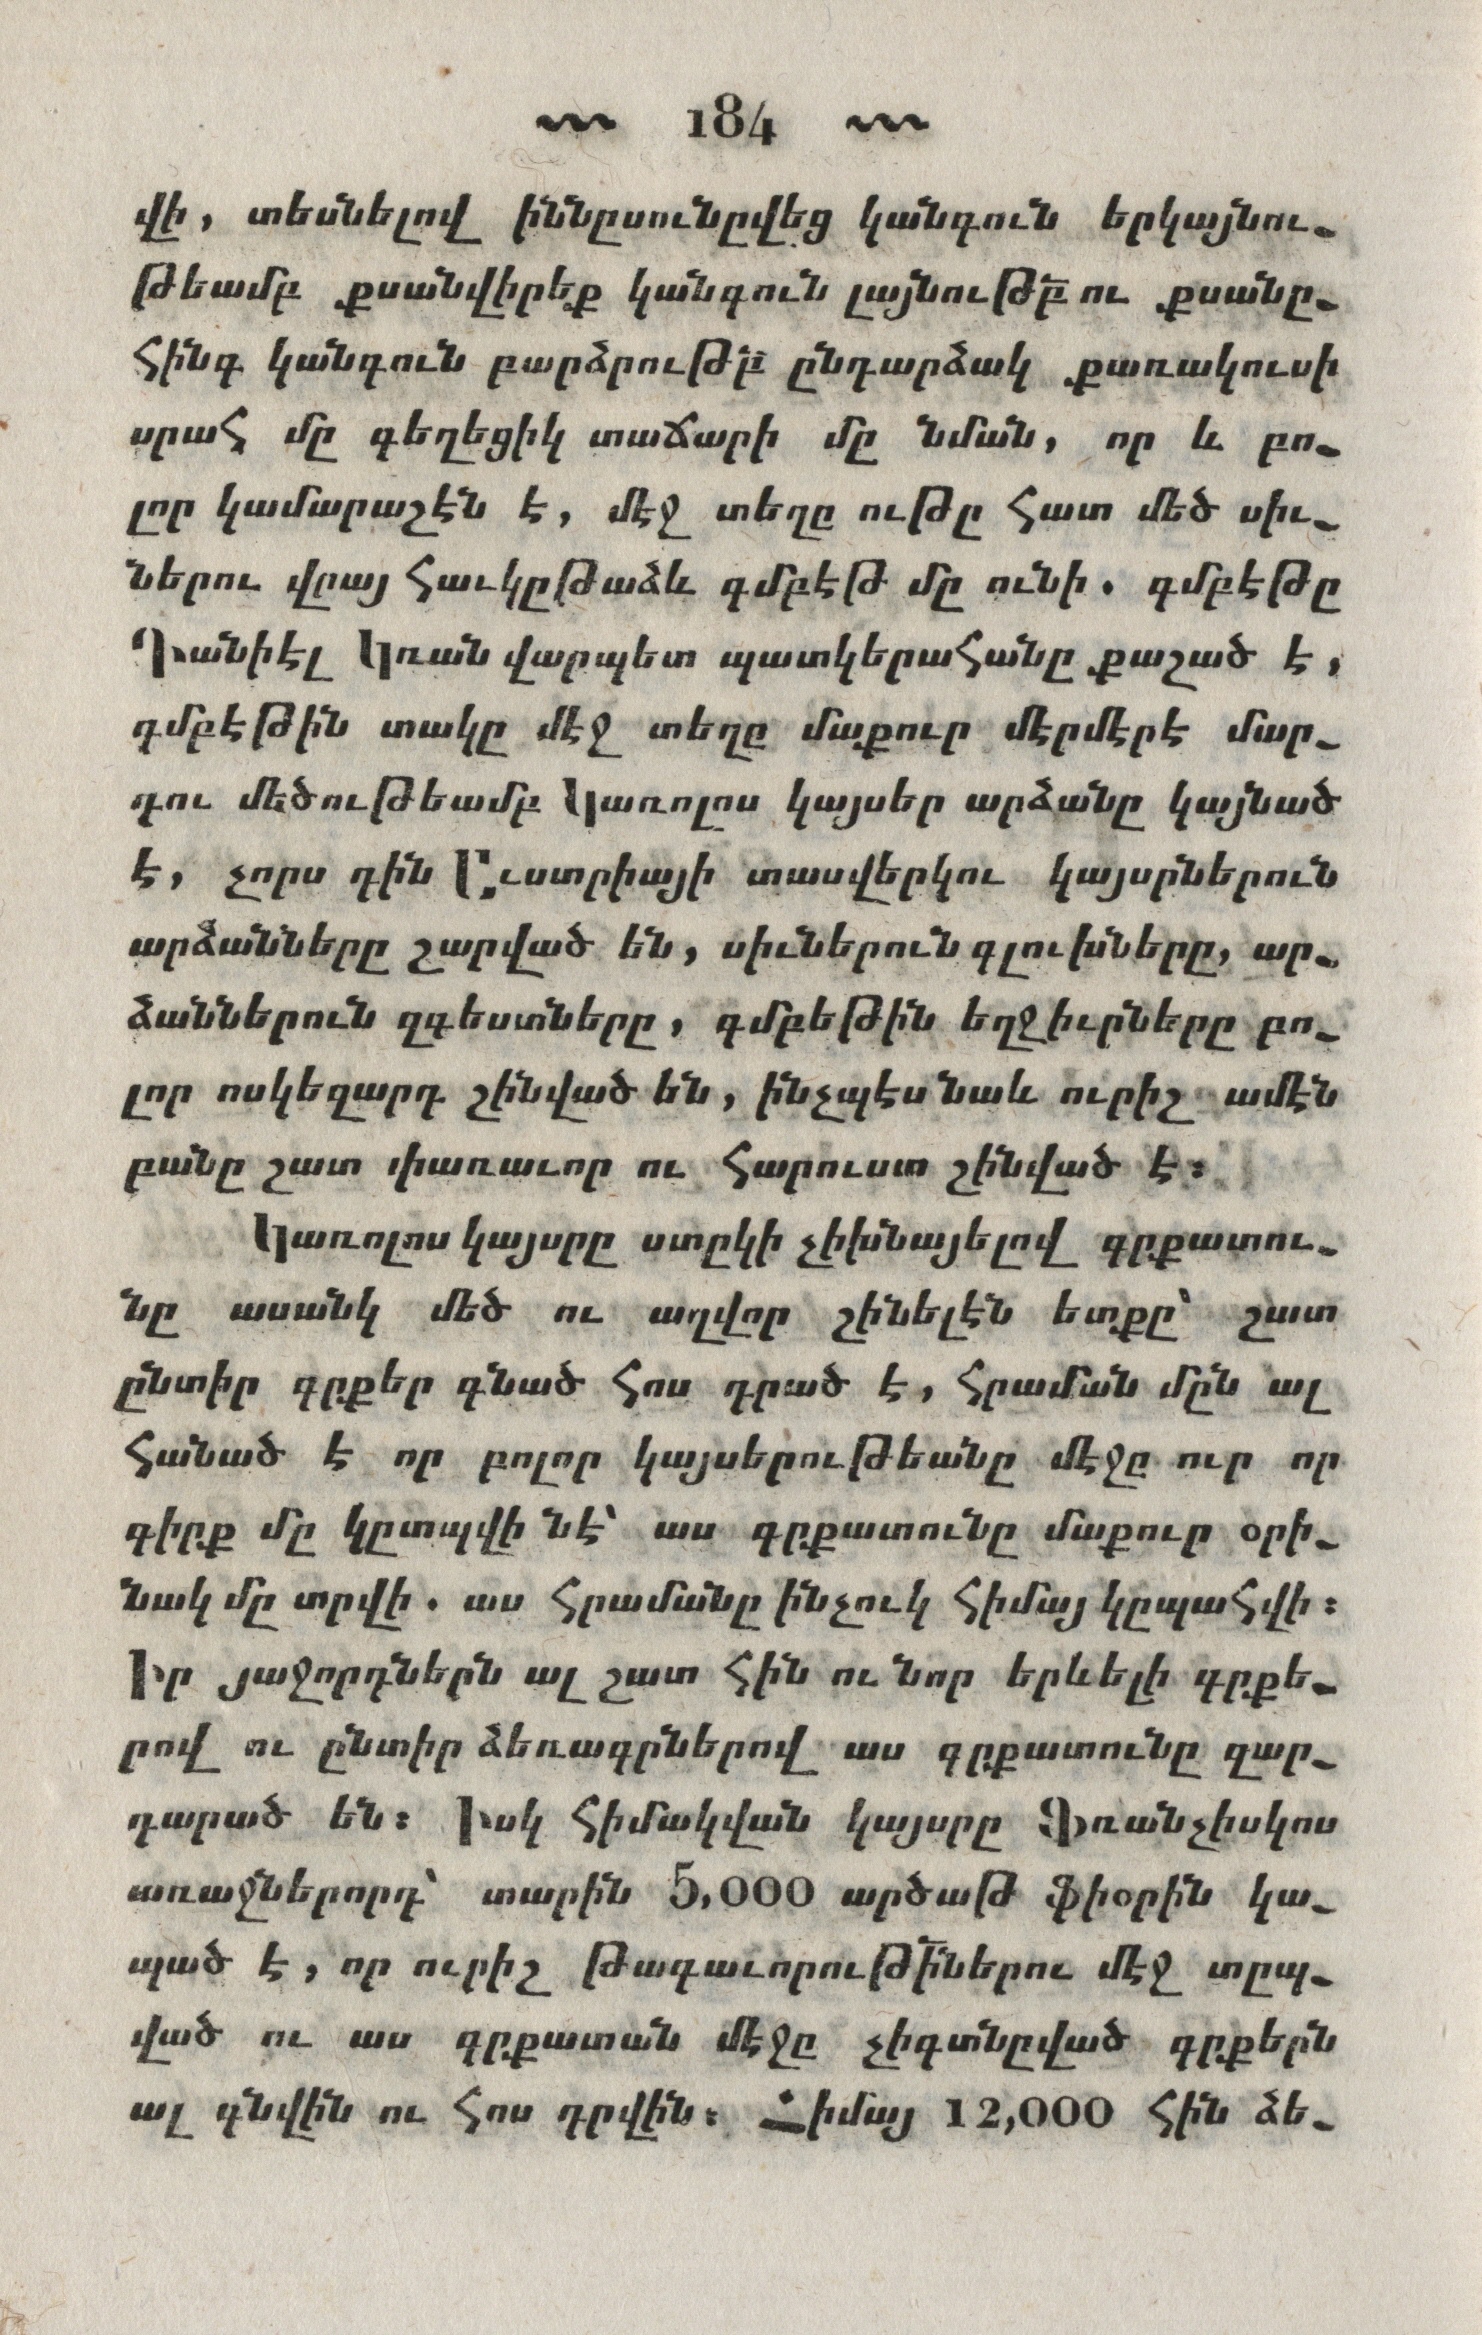 184
վի, տեսնելով իննըսունըվեց կանգուն երկայնու֊
թեամբ քսանվիրեք կանգուն լայնութբ ու քսանը֊
հինգ կանգուն բարձրութբ ընդարձակ քառակուսի
սրահ մը գեղեցիկ տաճարի մը նման, որ և բո֊
լոր կամարաշէն է, մէջ տեղը ութը հատ մեծ սիւ֊
ներու վրայ հաւկըթաձև գմբէթ մը ունի. գմբէթը
Դանիէլ Կռան վարպետ պատկերահանը քաշած է,
գմբէթին տակը մէջ տեղը մաքուր մէրմէրէ մար֊
դու մեծութեամբ Կառոլոս կայսեր արձանը կայնած
է, չորս դին Աւստրիայի տասվերկու կայսրներուն
արձանները շարված են, սիւներուն գլուխները, ար֊
ձաններուն զգեստները, գմբեթին եղջիւրները բո֊
լոր ոսկեզարդ շինված են, ինչպէս նաև ուրիշ ամէն
բանը շատ փառաւոր ու հարուստ շինված է։
Կառոլոս կայսրը ստըկի չիխնայելով գրքատու֊
նը ասանկ մեծ ու աղվոր շինելէն ետքը՝ շատ
ընտիր գրքեր գնած հոս դրած է, հրաման մըն ալ
հանած է որ բոլոր կայսերութեանը մէջը ուր որ
գիրք մը կըտպվի նէ՝ աս գրքատունը մաքուր օրի֊
նակ մը տրվի. աս հրամանը ինչուկ հիմայ կըպահվի։
Իր յաջորդներն ալ շատ հին ու նոր երևելի գրքե֊
րով ու ընտիր ձեռագրներով աս գրքատունը զար֊
դարած են։ Իսկ հիմակվան կայսրը Ֆռանչիսկոս
առաջներորդ՝ տարին 5,000 արծաթ ֆիօրին կա֊
պած է, որ ուրիշ թագաւորութիններու մէջ տըպ֊
ված ու աս գրքատան մէջը չիգտնըված գրքերն
ալ գնվին ու հոս դրվին։ Հիմայ 12,000 հին ձե֊